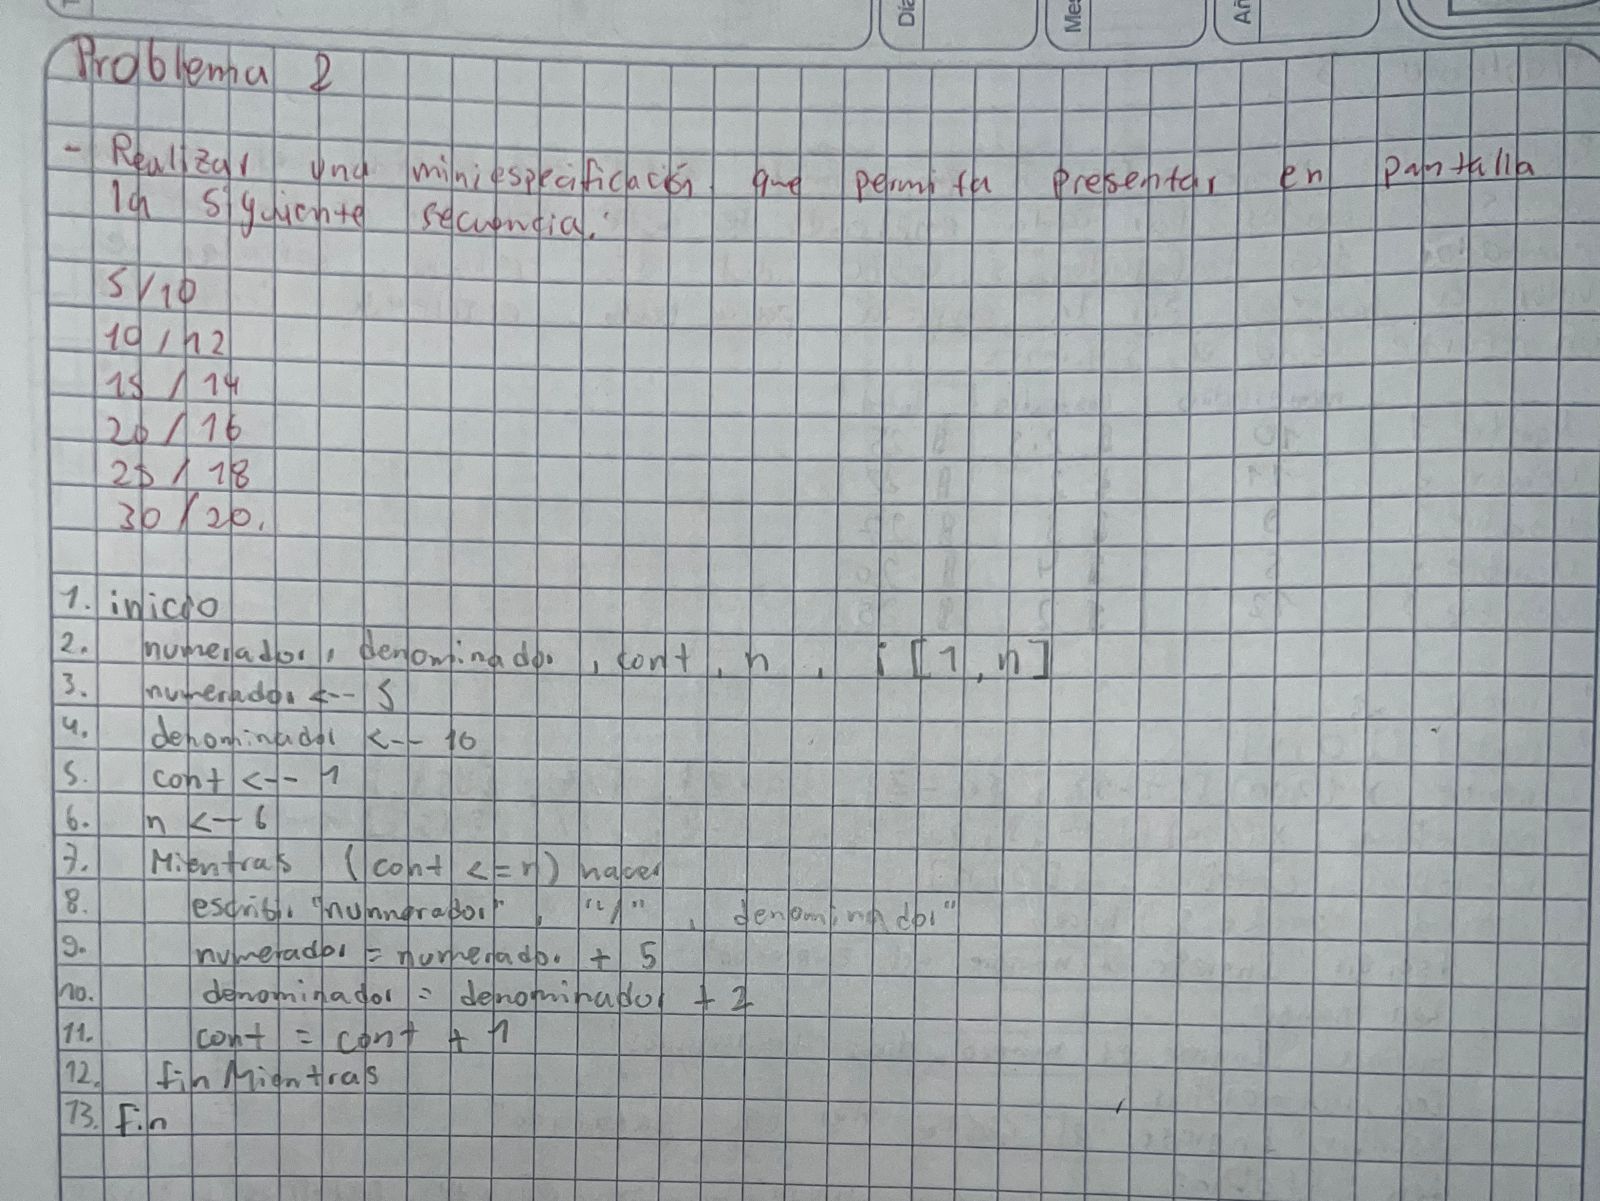 Día
Mes
Añ
Problema 2
- Realizar una miniespecificación que permita presentar en pantalla
la siguiente secuencia:
5/10
10/12
15/14
20/16
25/18
30/20.
1. inicio
2. numerador, denominador, cont, n, i [1, n]
3. numerador <-- 5
4. denominador <-- 10
5. cont <-- 1
6. n <-- 6
7. Mientras (cont <= n) hacer
8. escribir "numnerador", "/", denominador"
9. numerador = numerador + 5
10. denominador = denominador + 2
11. cont = cont + 1
12. fin Mientras
13. Fin